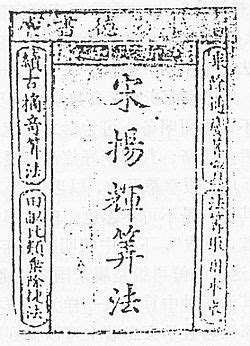 德書堂
乘除通變算寶
法算取用本末
宋揚輝算法
續古摘奇算法
田畝比類乘除捷法